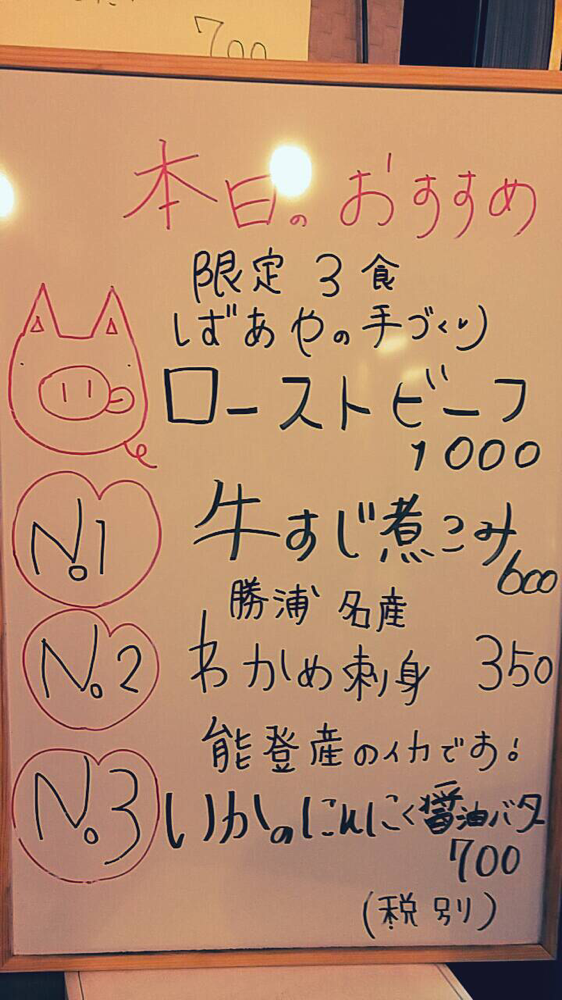 700
本日のおすすめ
限定 3食
しばあやの手づくり
ローストビーフ
1000
No.1
牛すじ煮こみ
600
勝浦 名産
No.2
わかめ刺身 350
能登産のイカです!
No.3
いかのにんにく醤油バター
700
(税別)